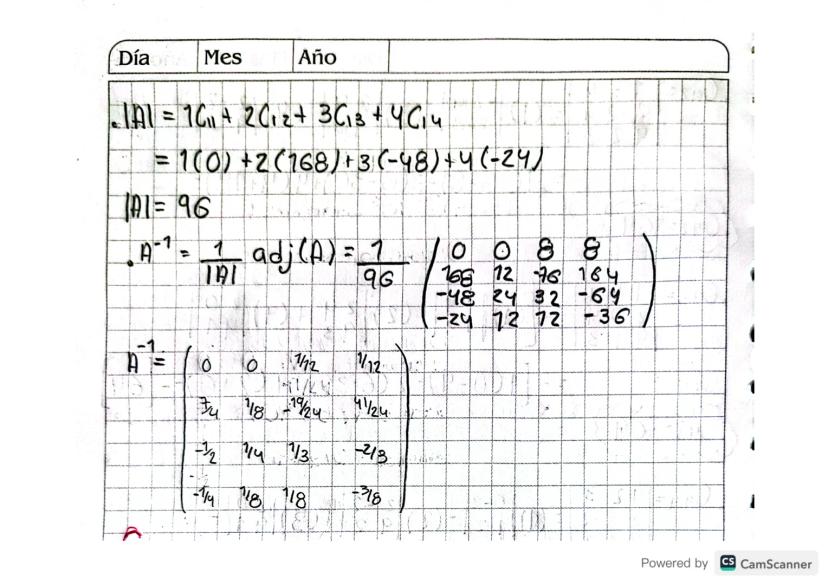 Día Mes Año
.|A| = 1C₁₁ + 2C₁₂ + 3C₁₃ + 4C₁₄
= 1(0) + 2(168) + 3(-48) + 4(-24)
|A| = 96
. A⁻¹ = 1/|A| adj(A) = 1/96 ( 0 0 8 8
168 12 -76 164
-48 24 32 -64
-24 12 12 -36 )
A⁻¹ = ( 0 0 1/12 1/12
7/4 1/8 -19/24 41/24
-1/2 1/4 1/3 -2/3
-1/4 1/8 1/8 -3/8 )
Powered by CS CamScanner